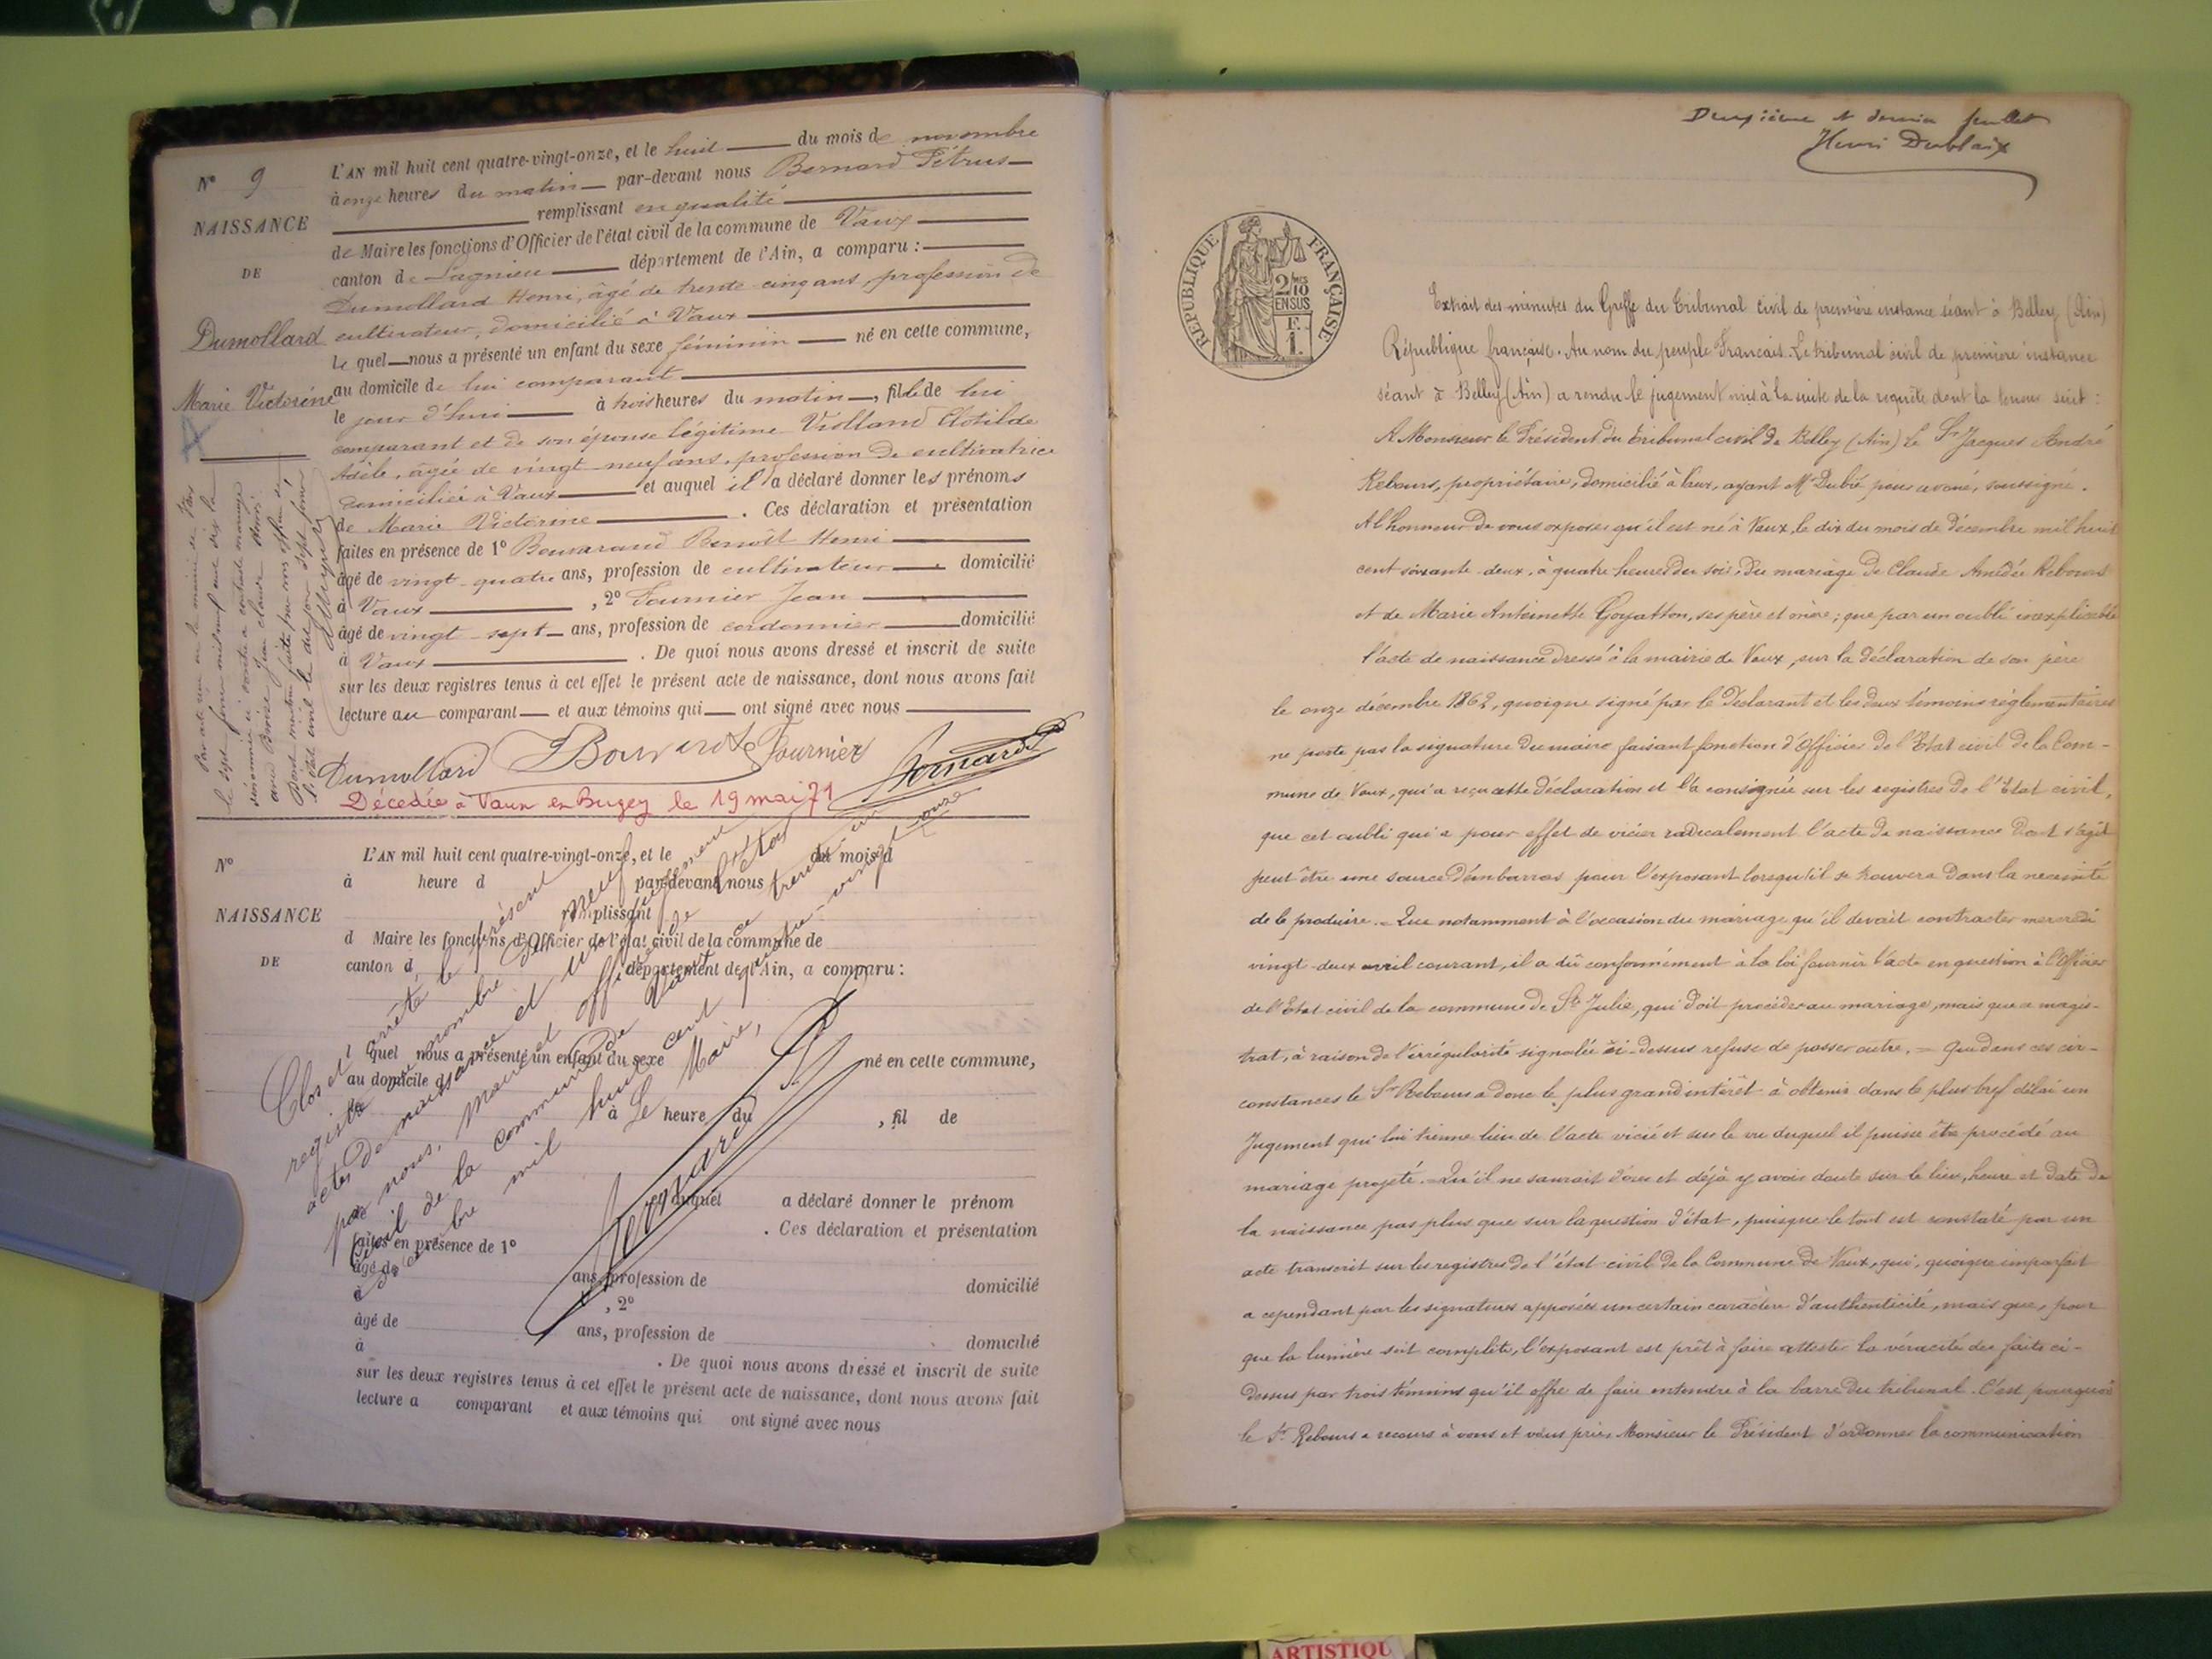 N° 9
NAISSANCE
DE
Dumollard
Marie Victorine
L'AN mil huit cent quatre-vingt-onze, et le huit du mois de novembre
à onze heures du matin par-devant nous Bernard Pétrus
remplissant en qualité
de Maire les fonctions d'Officier de l'état civil de la commune de Vaux
canton de Lagnieu département de l'Ain, a comparu :
Dumollard Henri, âgé de trente-cinq ans, profession de
cultivateur, domicilié à Vaux
Le quel nous a présenté un enfant du sexe féminin né en cette commune,
au domicile de lui comparant
le jour d'hui à trois heures du matin, fille de lui
comparant et de son épouse légitime Violland Clotilde
Adèle, âgée de vingt-neuf ans, profession de cultivatrice
domiciliée à Vaux et auquel il a déclaré donner les prénoms
de Marie Victorine . Ces déclaration et présentation
faites en présence de 1° Bouvarand Benoît Henri
âgé de vingt-quatre ans, profession de cultivateur domicilié
à Vaux , 2° Fournier Jean
âgé de vingt-sept ans, profession de cordonnier domicilié
à Vaux . De quoi nous avons dressé et inscrit de suite
sur les deux registres tenus à cet effet le présent acte de naissance, dont nous avons fait
lecture au comparant et aux témoins qui ont signé avec nous
Dumollard Fournier Bernard
Décédée à Vaux en Bugey le 19 mai 71
N°
NAISSANCE
DE
L'AN mil huit cent quatre-vingt-onze, et le du mois d
à heure d par-devant nous
remplissant
d Maire les fonctions d'Officier de l'état civil de la commune de
canton d département de l'Ain, a comparu :
l quel nous a présenté un enfant du sexe né en cette commune,
au domicile d
à heure du , fil de
et auquel a déclaré donner le prénom
. Ces déclaration et présentation
faites en présence de 1°
âgé de ans, profession de domicilié
à , 2°
âgé de ans, profession de domicilié
à . De quoi nous avons dressé et inscrit de suite
sur les deux registres tenus à cet effet le présent acte de naissance, dont nous avons fait
lecture a comparant et aux témoins qui ont signé avec nous
Clos et arrêté le présent
registre au nombre de neuf
actes de naissance et
par nous, Maire et officier de l'état
civil de la commune de Vaux ce trente un
décembre mil huit cent quatre-vingt-onze
Le Maire,
Bernard P
Deuxième et dernier feuillet
Henri Dublaix
REPUBLIQUE FRANÇAISE
2 10 EN SUS
F. 1.
Extrait des minutes du Greffe du Tribunal civil de première instance séant à Belley (Ain)
République française. Au nom du peuple Français. Le tribunal civil de première instance
séant à Belley (Ain) a rendu le jugement mis à la suite de la requête dont la teneur suit :
A Monsieur le Président du Tribunal civil de Belley (Ain) Le Sr Jacques André
Rebours, propriétaire, domicilié à Vaux, ayant Me Dubié pour avoué, soussigné.
A l'honneur de vous exposer qu'il est né à Vaux, le dix du mois de Décembre mil huit
cent soixante-deux, à quatre heures du soir, du mariage de Claude Amédée Rebours
et de Marie Antoinette Goyatton, ses père et mère ; que par un oubli inexplicable
l'acte de naissance dressé à la mairie de Vaux, sur la déclaration de son père
le onze décembre 1862, quoique signé par le Déclarant et les deux témoins réglementaires
ne porte pas la signature du maire faisant fonction d'Officier de l'Etat civil de la Com-
mune de Vaux, qui a reçu cette déclaration et l'a consignée sur les registres de l'Etat civil,
que cet oubli qui a pour effet de vicier radicalement l'acte de naissance dont s'agit
peut être une source d'embarras pour l'exposant lorsqu'il se trouvera dans la nécessité
de le produire. - Que notamment à l'occasion du mariage qu'il devait contracter mercredi
vingt-deux avril courant, il a dû conformément à la loi fournir l'acte en question à l'Officier
de l'Etat civil de la commune de Ste Julie, qui doit procéder au mariage, mais que ce magis-
trat, à raison de l'irrégularité signalée ci-dessus refuse de passer outre. = Que dans ces cir-
constances le Sr Rebours a donc le plus grand intérêt à obtenir dans le plus bref délai un
Jugement qui lui tienne lieu de l'acte vicié et sur le vu duquel il puisse être procédé au
mariage projeté. - Qu'il ne saurait d'ores et déjà y avoir doute sur le lieu, heure et date de
la naissance pas plus que sur la question d'état, puisque le tout est constaté par un
acte transcrit sur les registres de l'état civil de la Commune de Vaux, qui, quoique imparfait
a cependant par les signatures apposées un certain caractère d'authenticité, mais que, pour
que la lumière soit complète, l'exposant est prêt à faire attester la véracité des faits ci-
dessus par trois témoins qu'il offre de faire entendre à la barre du tribunal. C'est pourquoi
le Sr Rebours a recours à vous et vous prie, Monsieur le Président d'ordonner la communication
ARTISTIQU